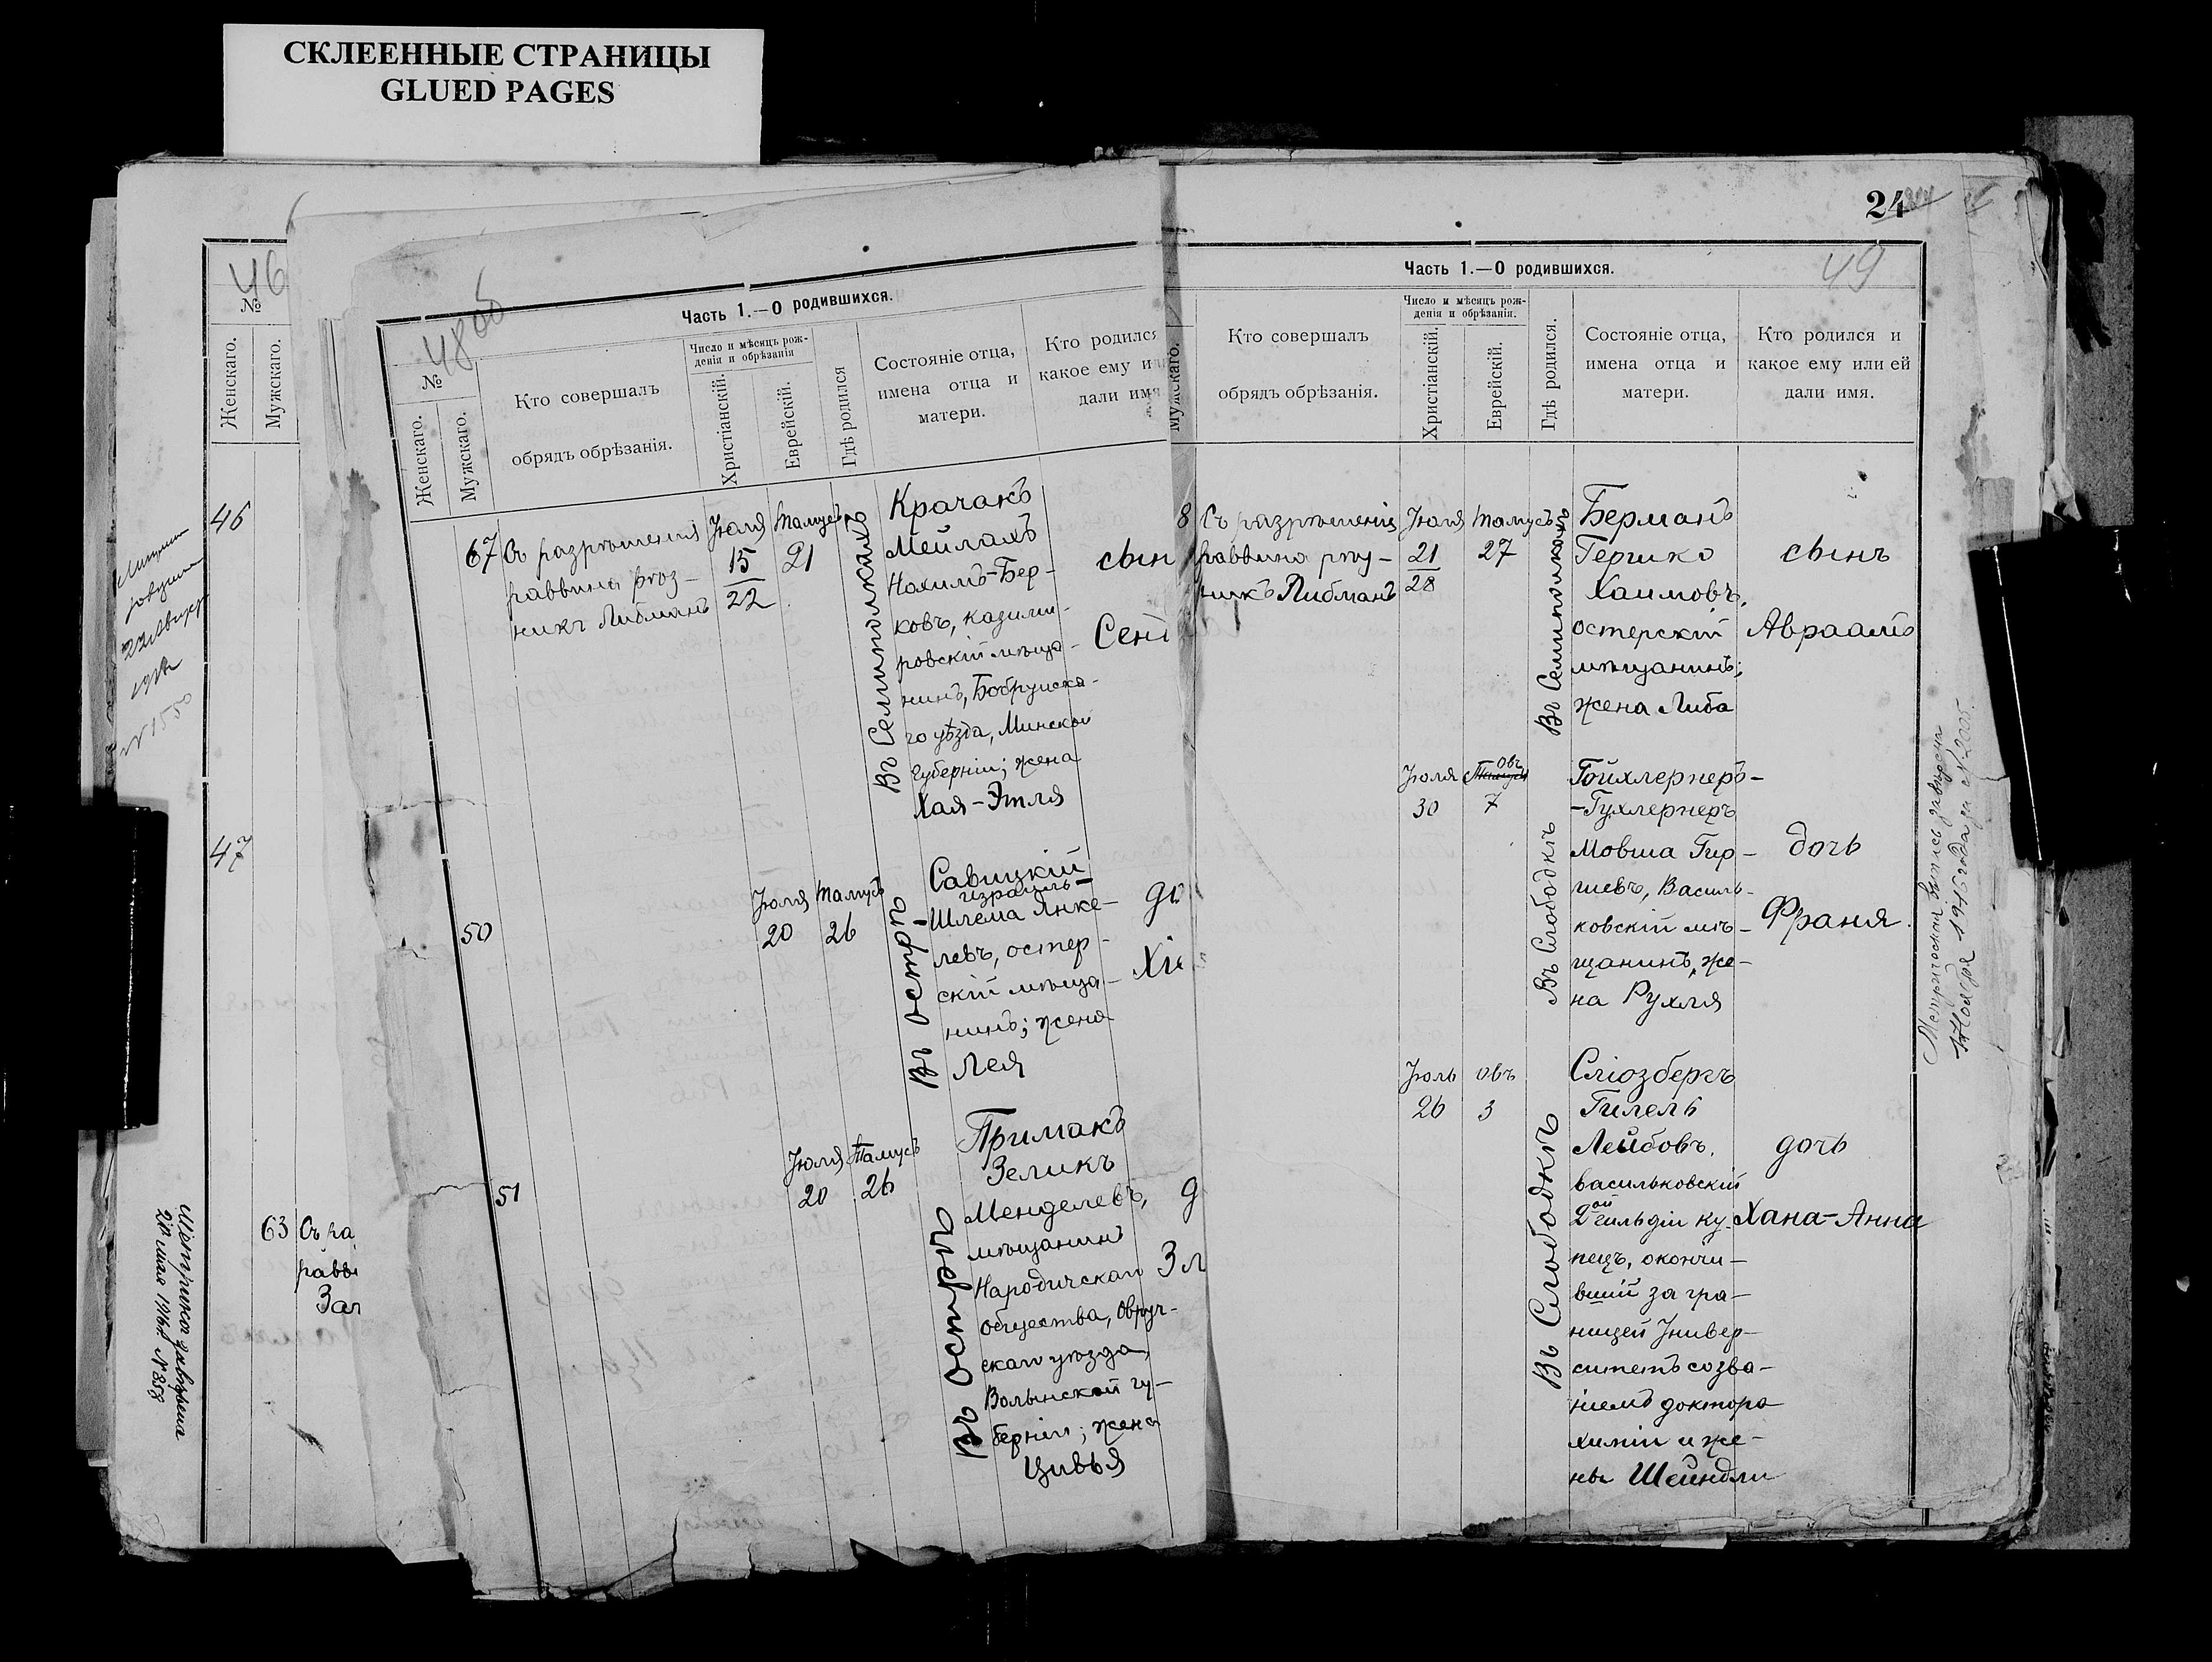 СКЛЕЕННЫЕ СТРАНИЦЫ
GLUED PAGES
46
№
Женскаго.
Мужскаго.
46
47
63 Съ ра
равви
Метрическая
28 мая 1916 г. № 858
48 об
Часть 1.—О родившихся.
№
Женскаго.
Мужскаго.
Кто совершалъ
обрядъ обрѣзанія.
Число и мѣсяцъ рож-
денія и обрѣзанія
Христіанскій.
Еврейскій.
Гдѣ родился
Состояніе отца,
имена отца и
матери.
Кто родился
какое ему и
дали имя
67
Съ разрѣшенія
раввина рѣз-
никъ Либманъ
Іюля
15
22
Тамусъ
21
Въ Семиполкахъ
Крачакъ
Мейлахъ
Нохимъ-Бер-
ковъ, казими-
ровскій мѣща-
нинъ, Бобруйска-
го уѣзда, Минской
губерніи; жена
Хая-Этля
сын
Сен
50
Іюля
20
Тамусъ
26
Въ Острѣ
Савицкій
Израиль-
Шлема Янке-
левъ, остер-
скій мѣща-
нинъ; жена
Лея
до
51
Іюля
20
Тамусъ
26
Въ Острѣ
Примакъ
Зеликъ
Менделевъ,
мѣщанинъ
Народичскаго
общества, Овруч-
скаго уѣзда,
Волынской гу-
берніи; жена
Цивья
д
Зл
24
49
Часть 1.—О родившихся.
Мужскаго.
Кто совершалъ
обрядъ обрѣзанія.
Число и мѣсяцъ рож-
денія и обрѣзанія.
Христіанскій.
Еврейскій.
Гдѣ родился.
Состояніе отца,
имена отца и
матери.
Кто родился и
какое ему или ей
дали имя.
8
Съ разрѣшенія
раввина рѣз-
никъ Либманъ
Іюля
21
28
Тамусъ
27
Въ Семиполкахъ
Берманъ
Гершко
Хаимовъ,
остерскій
мѣщанинъ;
жена Либа
сынъ
Авраамъ
Іюля
30
Тамусъ
Овъ
7
Въ Слободкѣ
Гойхлернеръ-
-Гухлернеръ
Мовша Гир-
шевъ, Василь-
ковскій мѣ-
щанинъ, же-
на Рухля
дочь
Франя.
Іюль
26
Овъ
3
Въ Слободкѣ
Сліозбергъ
Гилель
Лейбовъ,
васильковскій
2ой гильдіи ку-
пецъ, окончи-
вшій за гра-
ницей Универ-
ситетъ со зва-
ніемъ доктора
химіи и же-
ны Шейндли
дочь
Хана-Анна
Метрическая выпись
Ноября 1916 года за № 2005.